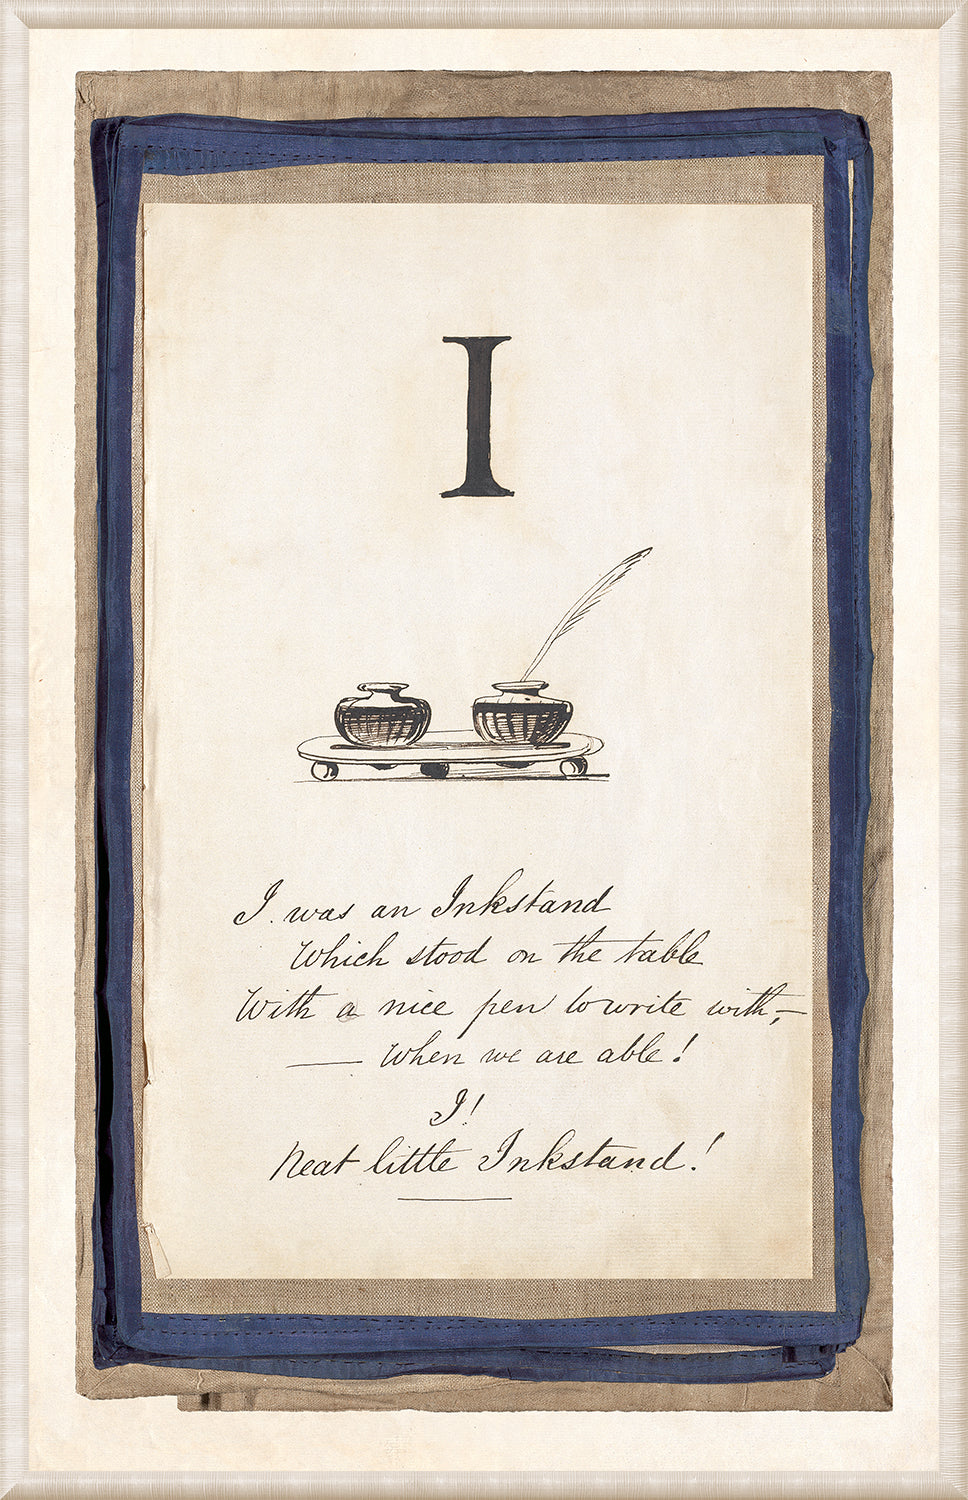 I
I. was an Inkstand
Which stood on the table
With a nice pen to write with,—
— When we are able!
I!
Neat little Inkstand!